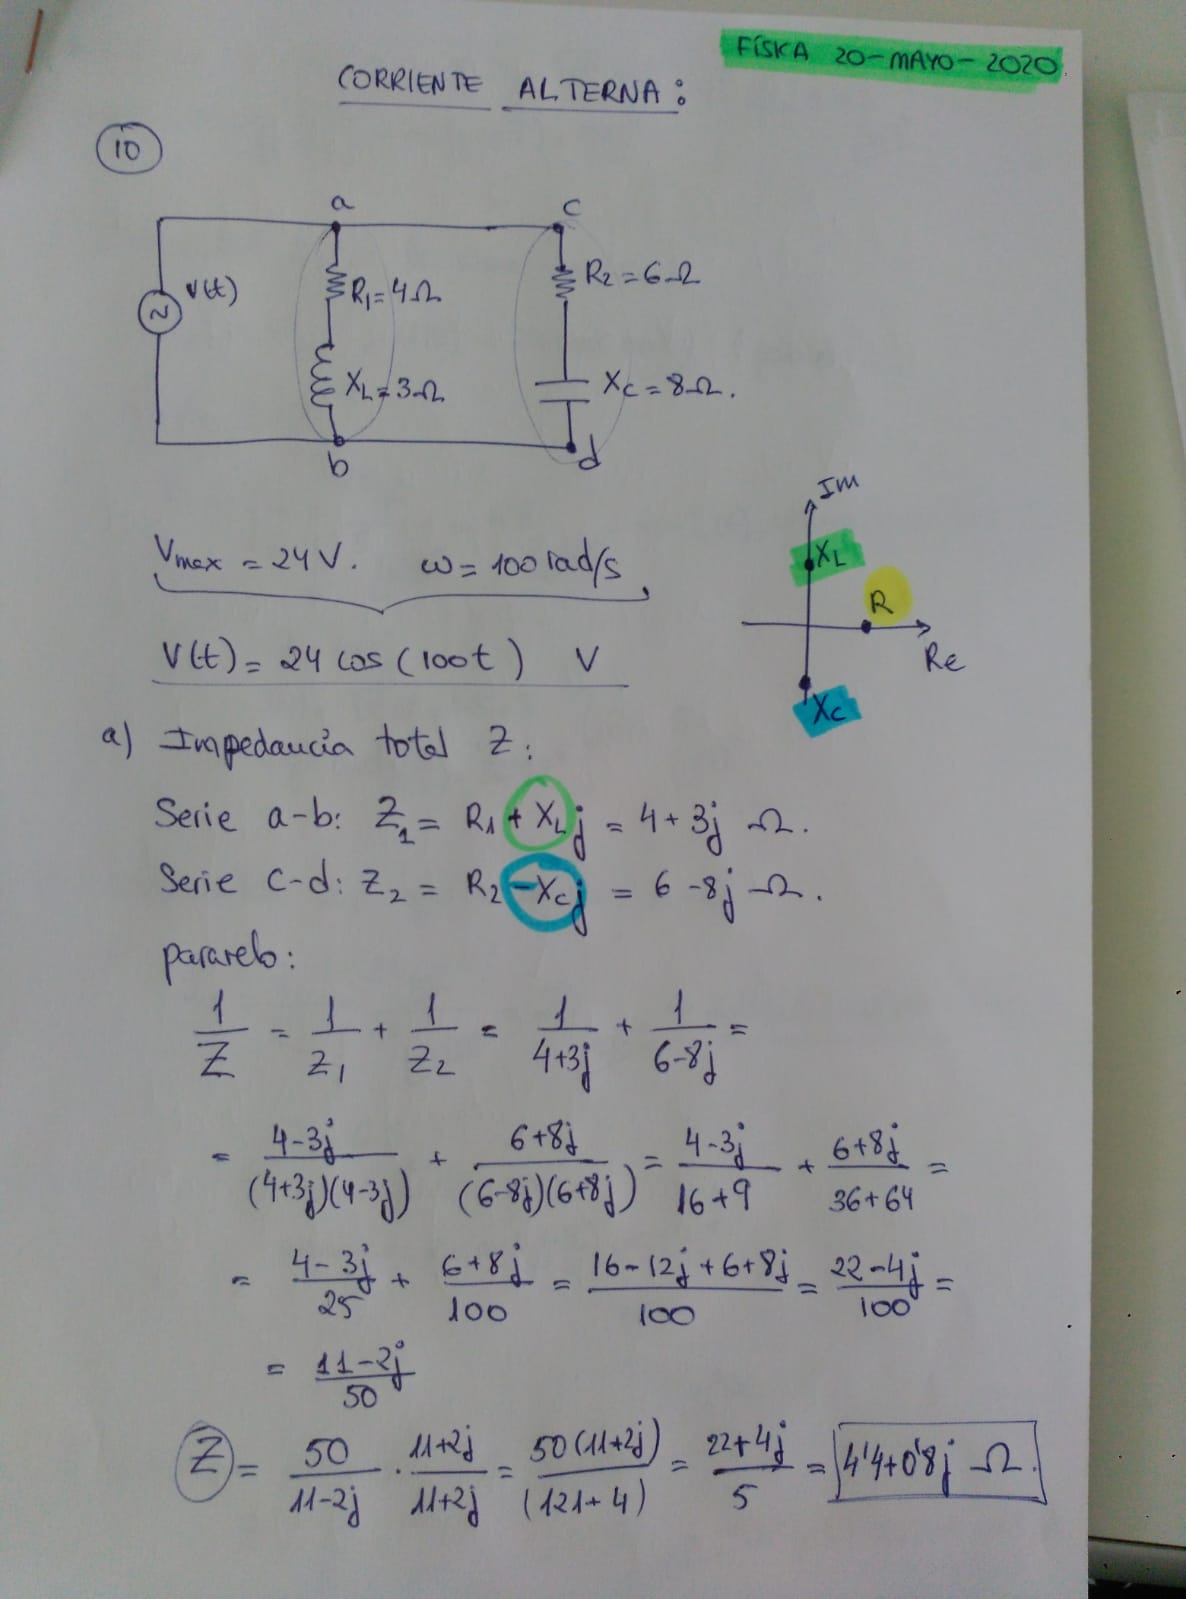 FÍSIKA 20-MAYO-2020
CORRIENTE ALTERNA:
10
a
c
V(t)
R₁=4Ω
R₂=6Ω
X_L=3Ω
X_C=8Ω.
b
d
Im
X_L
R
Re
X_C
Vmax = 24V. ω=100 rad/s
V(t)= 24 cos(100t) V
a) Impedancia total Z:
Serie a-b: Z₁= R₁ + X_L j = 4+3j Ω.
Serie c-d: Z₂ = R₂ -X_C j = 6-8j Ω.
pararelo:
1/Z = 1/Z₁ + 1/Z₂ = 1/(4+3j) + 1/(6-8j) =
= (4-3j)/((4+3j)(4-3j)) + (6+8j)/((6-8j)(6+8j)) = (4-3j)/(16+9) + (6+8j)/(36+64) =
= (4-3j)/25 + (6+8j)/100 = (16-12j+6+8j)/100 = (22-4j)/100 =
= (11-2j)/50
Z = 50/(11-2j) · (11+2j)/(11+2j) = 50(11+2j)/(121+4) = (22+4j)/5 = 4'4+0'8j Ω.